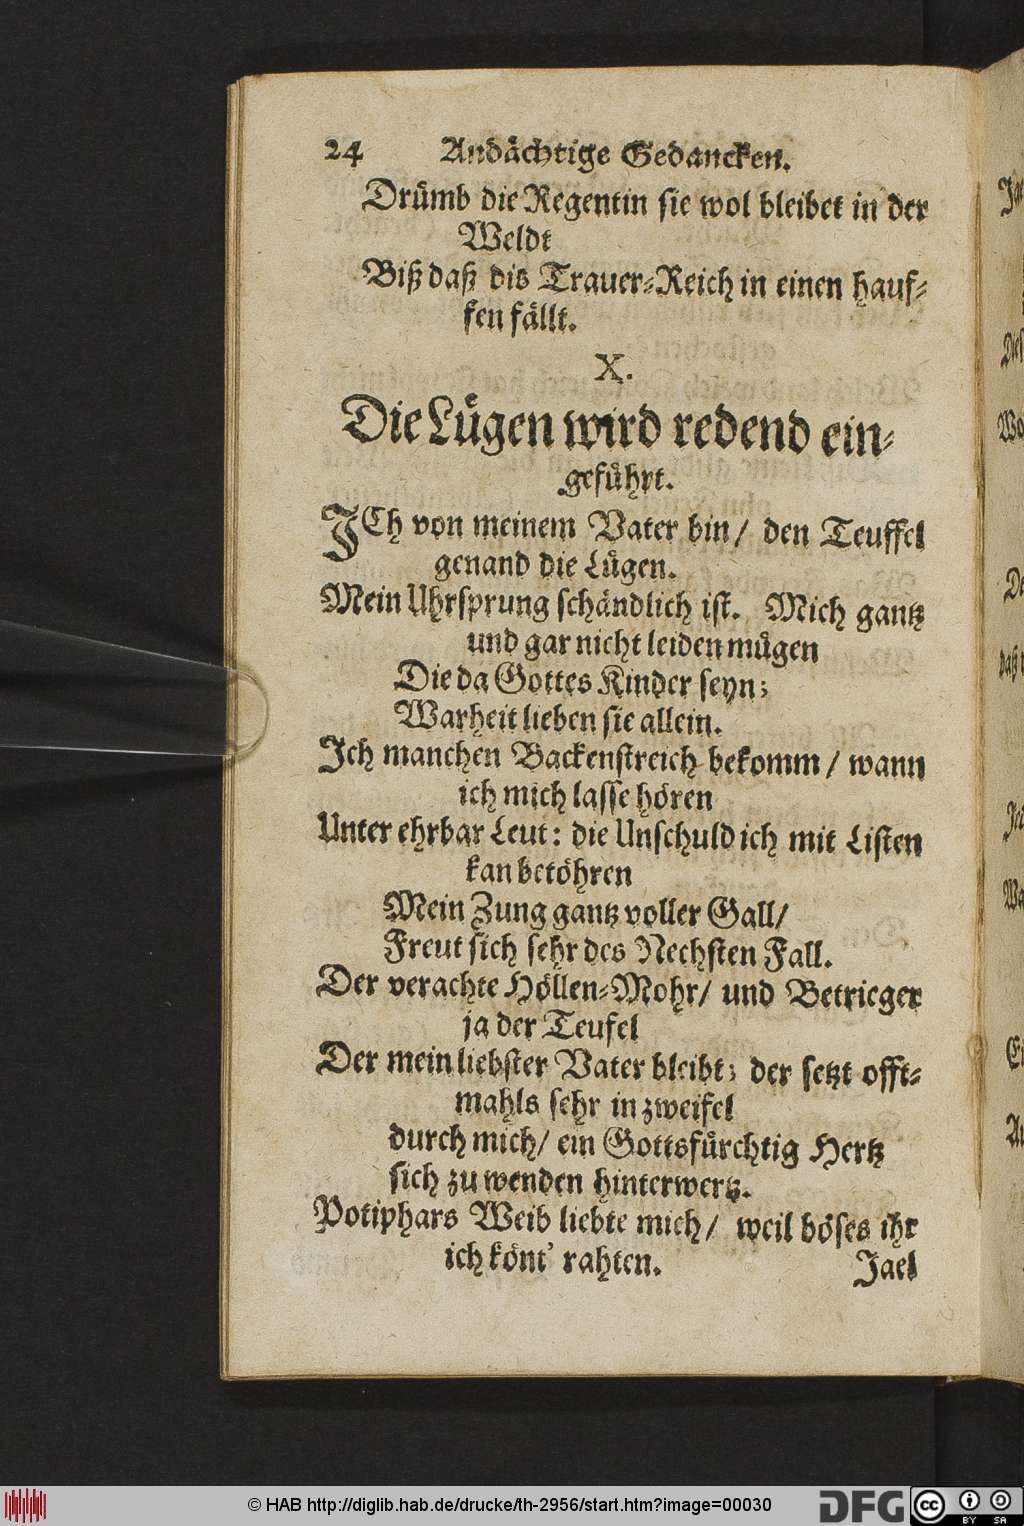 24 Andächtige Gedancken.
Drümb die Regentin sie wol bleibet in der
Weldt
Biß daß dis Trauer-Reich in einen hauf-
fen fällt.
X.
Die Lügen wird redend ein-
geführt.
JCh von meinem Vater bin / den Teuffel
genand die Lügen.
Mein Uhrsprung schändlich ist. Mich gantz
und gar nicht leiden mügen
Die da Gottes Kinder seyn;
Warheit lieben sie allein.
Jch manchen Backenstreich bekomm / wann
ich mich lasse hören
Unter ehrbar Leut: die Unschuld ich mit Listen
kan betöhren
Mein Zung gantz voller Gall /
Freut sich sehr des Nechsten Fall.
Der verachte Höllen-Mohr / und Betrieger
ja der Teufel
Der mein liebster Vater bleibt; der setzt offt-
mahls sehr in zweifel
durch mich / ein Gottsfürchtig Hertz
sich zu wenden hinterwertz.
Potiphars Weib liebte mich / weil böses ihr
ich könt' rahten.
Jael
© HAB http://diglib.hab.de/drucke/th-2956/start.htm?image=00030
DFG
cc BY SA